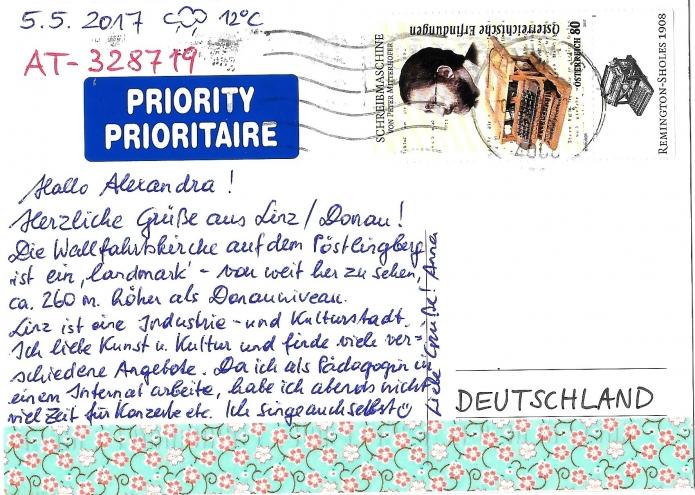 5.5.2017 12°C
AT-328719
PRIORITY
PRIORITAIRE
SCHREIBMASCHINE
VON PETER MITTERHOFER
Österreichische Erfindungen
ÖSTERREICH 80
REMINGTON-SHOLES 1908
Hallo Alexandra!
Herzliche Grüße aus Linz/Donau!
Die Wallfahrtskirche auf dem Pöstlingberg
ist ein 'landmark' - von weit her zu sehen,
ca. 260 m. höher als Donauniveau.
Linz ist eine Industrie- und Kulturstadt.
Ich liebe Kunst u. Kultur und finde viele ver=
schiedene Angebote. Da ich als Pädagogin in
einem Internat arbeite, habe ich abends nicht
viel Zeit für Konzerte etc. Ich singe auch selbst☺
Liebe Grüße! Anna
DEUTSCHLAND